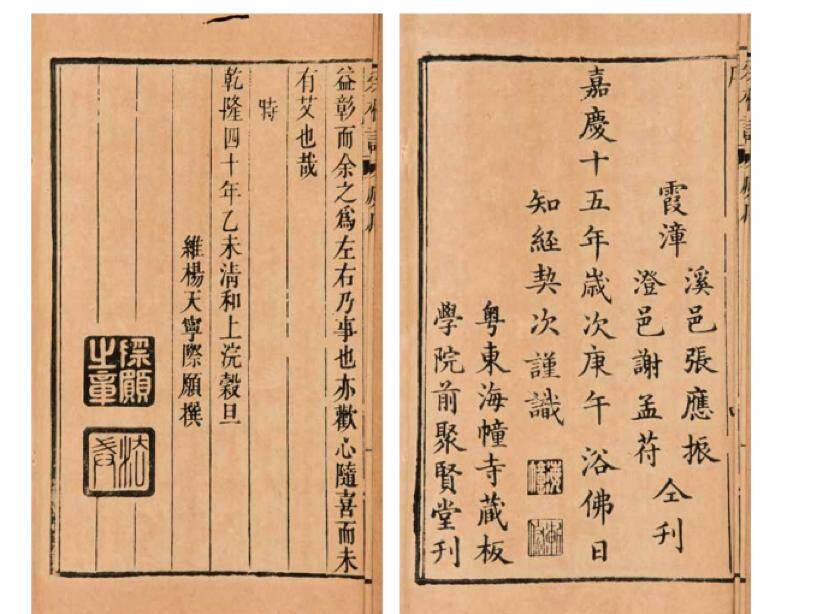 霞漳
溪邑張應振
澄邑謝孟苻
仝刊
嘉慶十五年歲次庚午浴佛日
知經契次謹識
粤東海幢寺藏板
學院前聚賢堂刊
益彰而余之爲左右乃事也亦歡心隨喜而未
有艾也哉
時
乾隆四十年乙未清和上浣穀旦
維楊天寧際願撰
際願之章